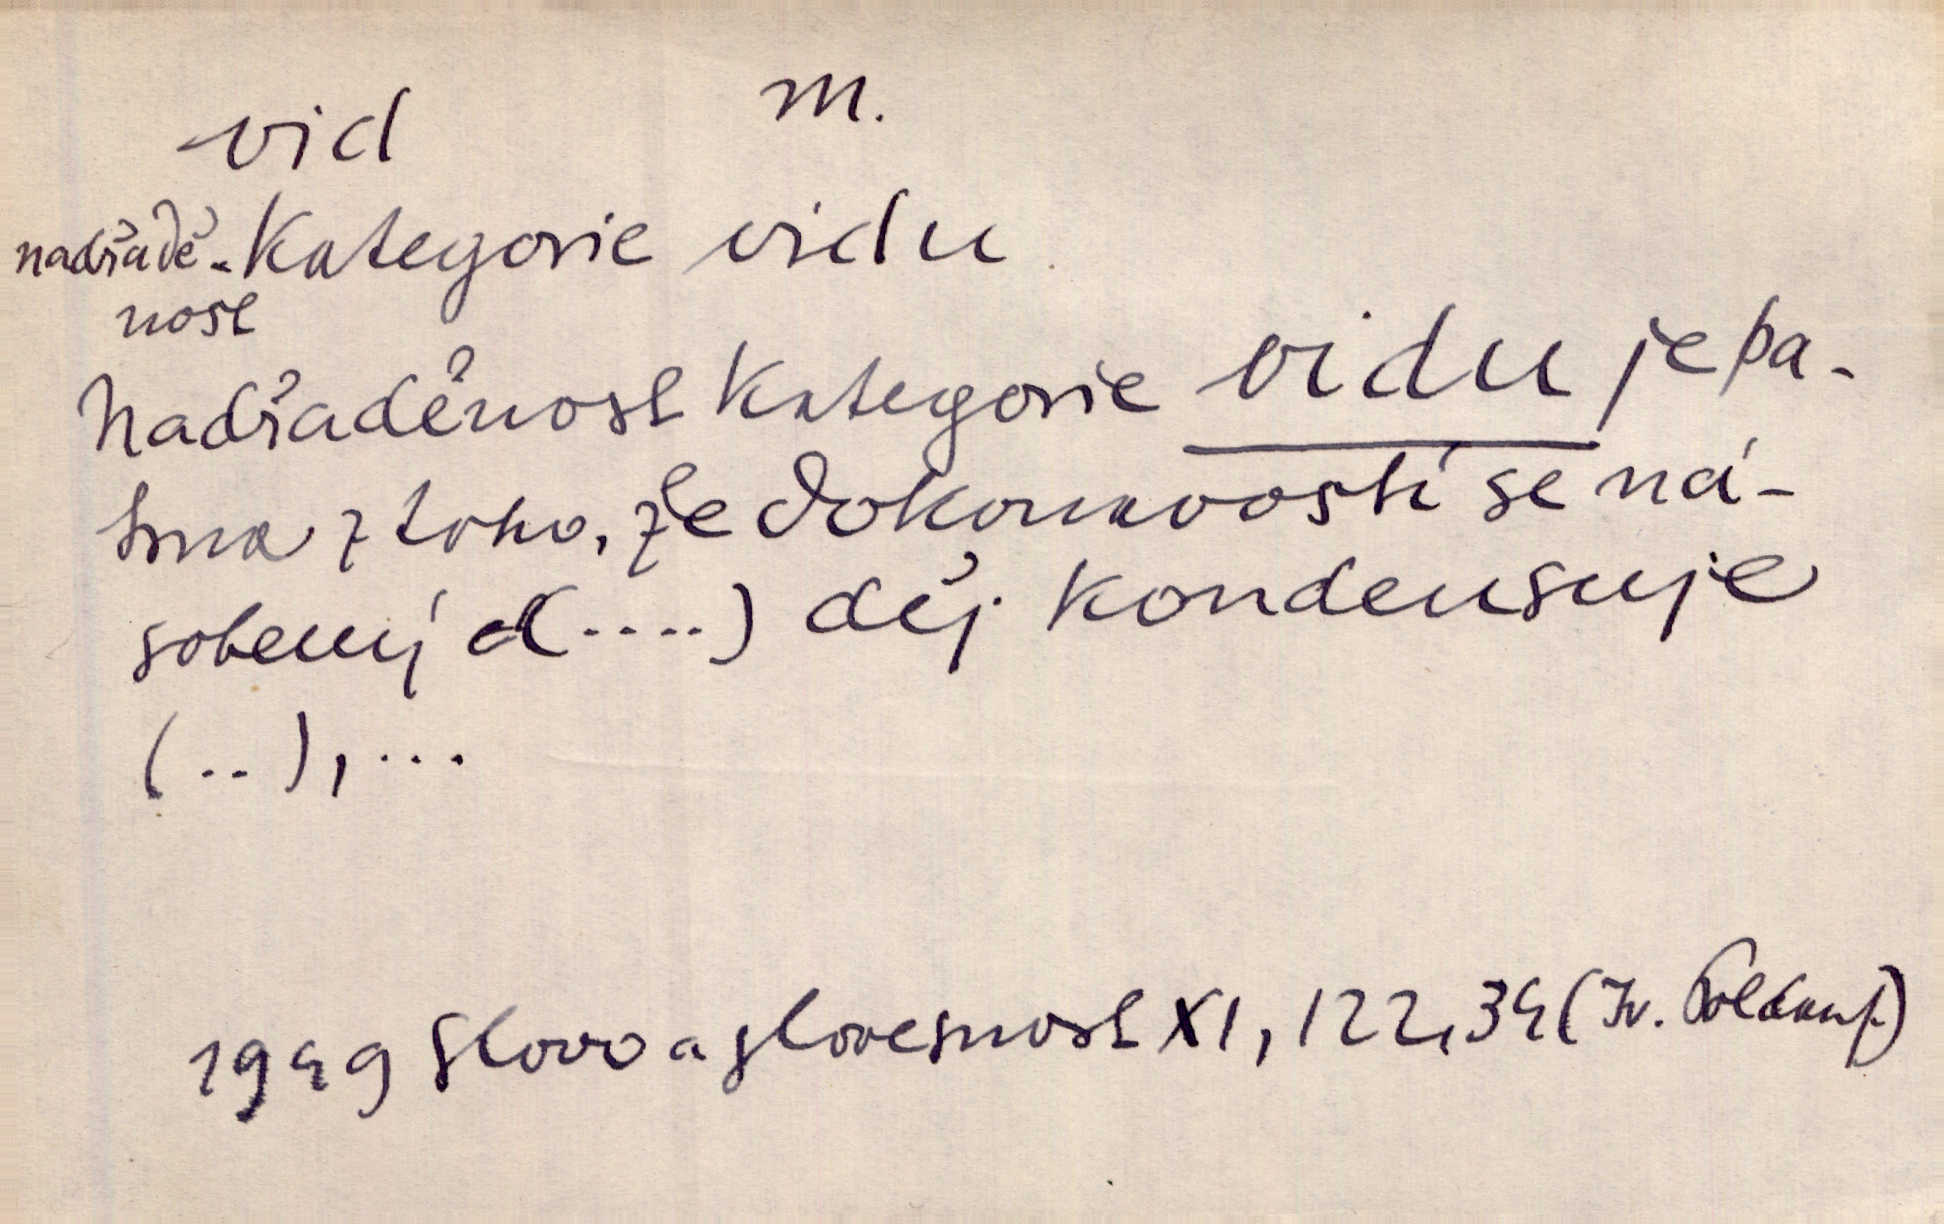 vid m.
nadřadě-
nost
kategorie vidu
Nadřaděnost kategorie vidu je pa-
trna z toho, že dokonavostí se ná-
sobený (....) děj kondensuje
(..), ...
1949 Slovo a slovesnost XI, 122, 34 (Iv. Poldauf)